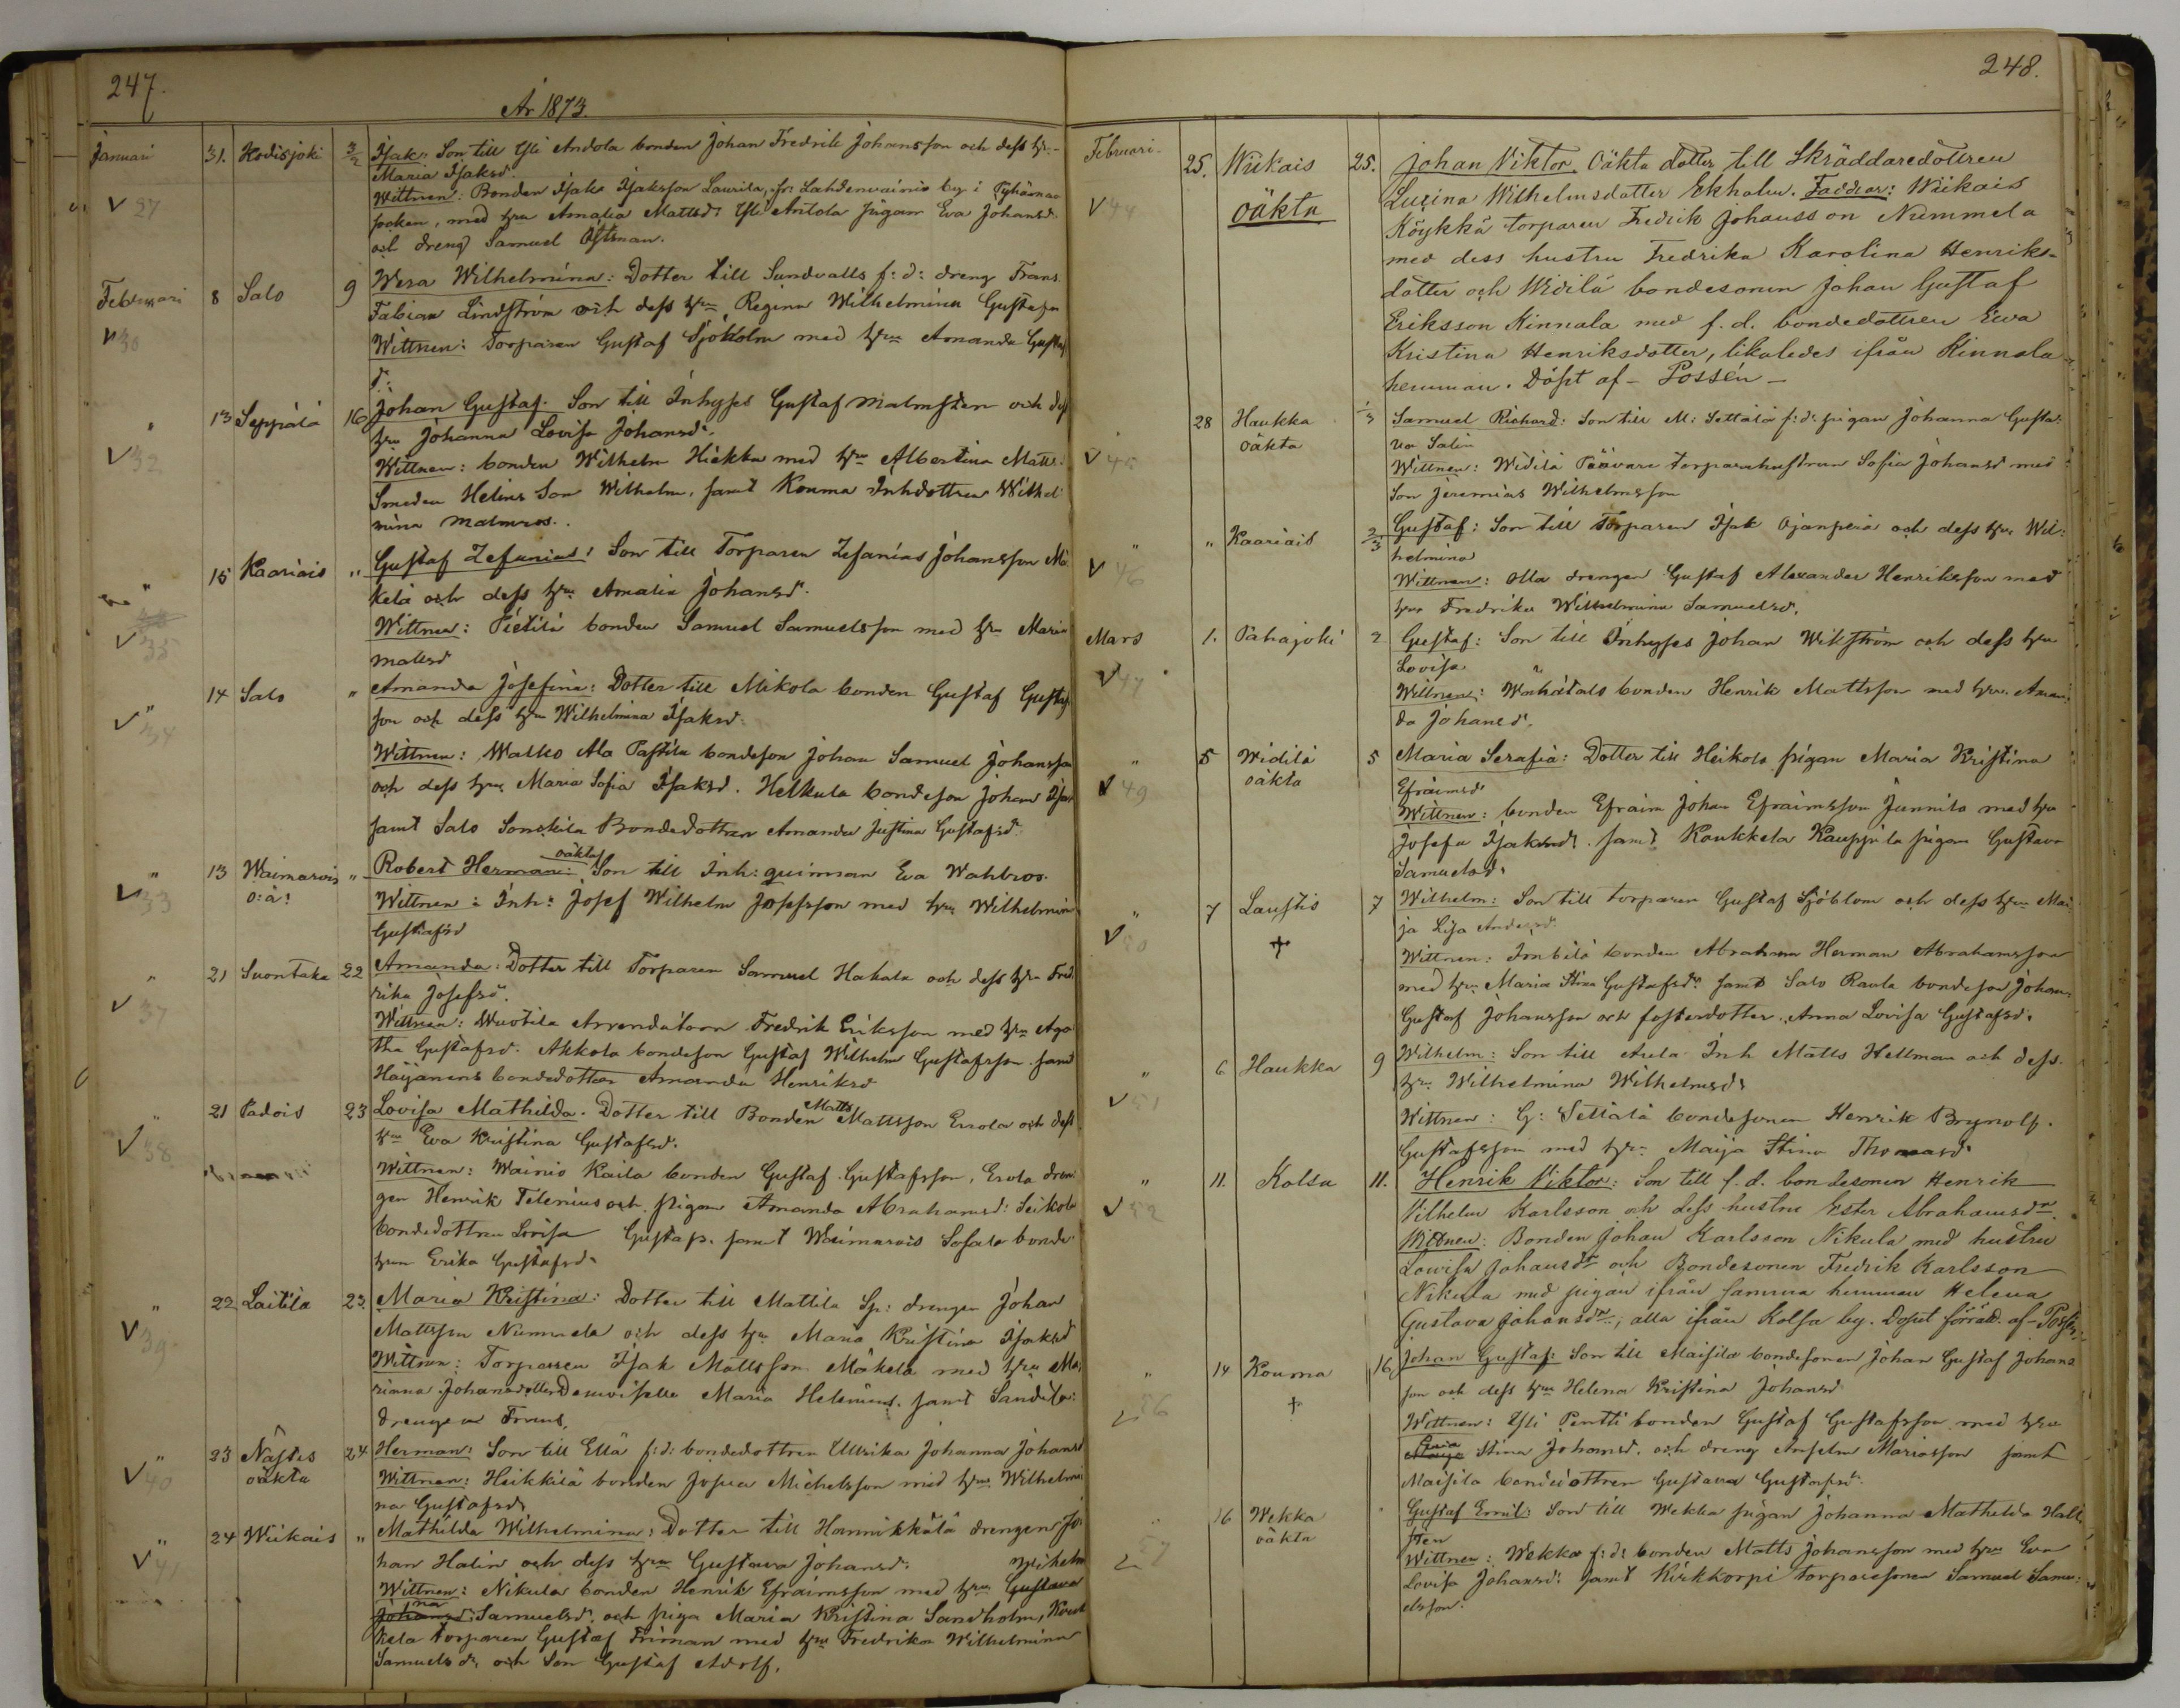 247.
År 1873.
Januari 31. Kodisjoki 3/2 Isak: Son till Yli Andola bonden Johan Fredrik Johansson och dess hru
Maria Isaksd.
V 27 Wittnen: Bonden Isak Isaksson Laurila, fr: Lahdenvainio by i Pyhämaa
socken, med hru Amalia Mattsd. Yli Antola pigan Eva Johansd.
och dreng Samuel Östman.
Februari 8 Salo 9 Wera Wilhelmina: Dotter till Sundvalls f: d: dreng Frans
Fabian Lindström och dess hru Regina Wilhelmina Gustafsd
V 30 Wittnen: Torparen Gustaf Sjöholm med hru Amanda Gustaf
d:
" 13 Seppälä 16 Johan Gustaf. Son till Inhyses Gustaf Malmsten och dess
hru Johanna Lovisa Johansd.
V 32 Wittnen: bonden Wilhelm Hiekka med hru Albertina Matts:
Smeden Helins Son Wilhelm, samt Kouma Inhdottren Wilhel-
mina Malmros.
" 15 Kaariais " Gustaf Zefanias: Son till Torparen Zefanias Johansson Mä-
kelä och dess hru Amalia Johansd.
V 35 Wittnen: Pietilä bonden Samuel Samuelsson med hru Maria
Mattsd
" 14 Salo " Amanda Josefina: Dotter till Mikola bonden Gustaf Gustaf
son och dess hru Wilhelmina Isaksd.
V 34 Wittnen: Walko Ala Pastila bondeson Johan Samuel Johansson
och dess hru Maria Sofia Isaksd. Helkula bondeson Johan Isak
samt Salo Sonckila Bondedottren Amanda Justina Gustafsd.
" 13 Waimarois " Robert Herman: oäkta Son till Inh: quinnan Eva Wahlroos.
V 33 o: ä: Wittnen: Inh: Josef Wilhelm Josefsson med hru Wilhelmina
Gustafsd
" 21 Suontaka 22 Amanda: Dotter till Torparen Samuel Hakala och dess hru Fred
rika Josefsd.
V 37 Wittnen: Wuotila Arrendatorn Fredrik Eriksson med hru Aga-
tha Gustafsd. Akkola bondeson Gustaf Wilhelm Gustafsson samt
Häijänens bondedotter Amanda Henriksd
" 21 Padois 23 Lovisa Mathilda. Dotter till Bonden Matts Mattsson Erola och dess
V 38 hru Eva Kristina Gustafsd.
Wittnen: Wainio Kaila bonden Gustaf Gustafsson, Erola dren-
gen Henrik Telenius och pigan Amanda Abrahamsd: Seikola
bondedottren Lovisa Gustafs. samt Waimarois Sofala bonde
hrun Erika Gustafsd.
" 22 Laitila 23 Maria Kristina: Dotter till Mattila Sp: drengen Johan
V 39 Mattsson Nummela och dess hru Maria Kristina Isaksd
Wittnen: Torparen Isak Mattsson Mäkelä med hru Ma-
rianna Johansdotter Demoiselle Maria Helenius. samt Sandila:
drengen Frans.
" 23 Nästis 24 Herman: Son till Ellä f: d: bondedottren Ulrika Johanna Johansd
V 40 oäkta Wittnen: Heikkilä bonden Josua Michelsson med hru Wilhelmi
na Gustafsd.
" 24 Wiikais " Mathilda Wilhelmina: Dotter till Hannikkälä drengen Jo-
V 41 han Halin och dess hru Gustava Johansd.
Wittnen: Nikula bonden Henrik Efraimsson med hru Gustava Wilhelm
Johansd: na Samuelsd. och piga Maria Kristina Sandholm, Kouk
kela torparen Gustaf Friman med hru Fredrika Wilhelmina
Samuelsd. och Son Gustaf Adolf.
248.
Februari 25. Wiikais 25. Johan Viktor. Oäkta dotter till Skräddaredottren
V 44 oäkta Lucina Wilhelmsdotter Ekholm. Faddrar: Wiikais
Köykkä torparen Fredrik Johansson Nummela
med dess hustru Fredrika Karolina Henriks-
dotter och Widilä bondesonen Johan Gustaf
Eriksson Kinnala med f. d. bondedottren Ewa
Kristina Henriksdotter, likaledes ifrån Kinnala
hemman. Döpt af - Possén -
28 Haukka 1/3 Samuel Richard: Son till M: Settälä f: d: pigan Johanna Gusta-
V 45 oäkta va Salin
Wittnen: Widilä Päävari torparehustrun Sofia Johansd med
Son Jeremias Wilhelmsson
" " Kaariais 2/3 Gustaf: Son till Torparen Isak Ojanperä och dess hru Wil-
V 46 helmina
Wittnen: Olla drengen Gustaf Alexander Henriksson med
hru Fredrika Wilhelmina Samuelsd.
Mars 1. Pahajoki 2 Gustaf: Son till Inhyses Johan Wikström och dess hru
V 47 Lovisa
Wittnen: Wanhatalo bonden Henrik Mattsson med hru Aman-
da Johansd.
" 5 Widilä 5 Maria Serafia: Dotter till Heikola pigan Maria Kristina
V 49 oäkta Efraimsd
Wittnen: bonden Efraim Johan Efraimsson Junnila med hru
Josefa Isaksd. samt Koukkela Kauppila pigan Gustava
Samuelsd.
" 7 Laustis 7 Wilhelm: Son till torparen Gustaf Sjöblom och dess hru Mai-
V 50 † ja Lisa Andersd.
Wittnen: Imbilä bonden Abraham Herman Abrahamsson
med hru Maria Stina Gustafsd. samt Salo Raula bondeson Johan
Gustaf Johansson och fosterdotter Anna Lovisa Gustafsd.
" 6 Haukka 9 Wilhelm: Son till Aula Inh Matts Hellman och dess
V 51 hru Wilhelmina Wilhelmsd.
Wittnen: G: Settälä bondesonen Henrik Brynolf
Gustafsson med hru Maija Stina Thomasd.
" 11. Kolsa 11. Henrik Viktor: Son till f. d. bondesonen Henrik
V 52 Vilhelm Karlsson och dess hustru Ester Abrahamsdr.
Wittnen: Bonden Johan Karlsson Nikula med hustru
Lowisa Johansdr och Bondesonen Fredrik Karlsson
Nikula med pigan ifrån samma hemman Helena
Gustava Johansdr, alla ifrån Kolsa by. Döpt förrätt. af - Possén
" 14 Kouma 16 Johan Gustaf: Son till Maisila bondesonen Johan Gustaf Johans
56 † son och dess hru Helena Kristina Johansd
Wittnen: Yli Pentti bonden Gustaf Gustafsson med hru
Maija Caisa Stina Johansd. och dreng Anselm Mariasson samt
Maisila bondedottren Gustava Gustafsd.
" 16 Wekka " Gustaf Emil: Son till Wekka pigan Johanna Mathilda Hall
57 oäkta sten
Wittnen: Wekka f: d: bonden Matts Johansson med hru Eva
Lovisa Johansd: samt Kirkkorpi torparesonen Samuel Samu-
elsson.